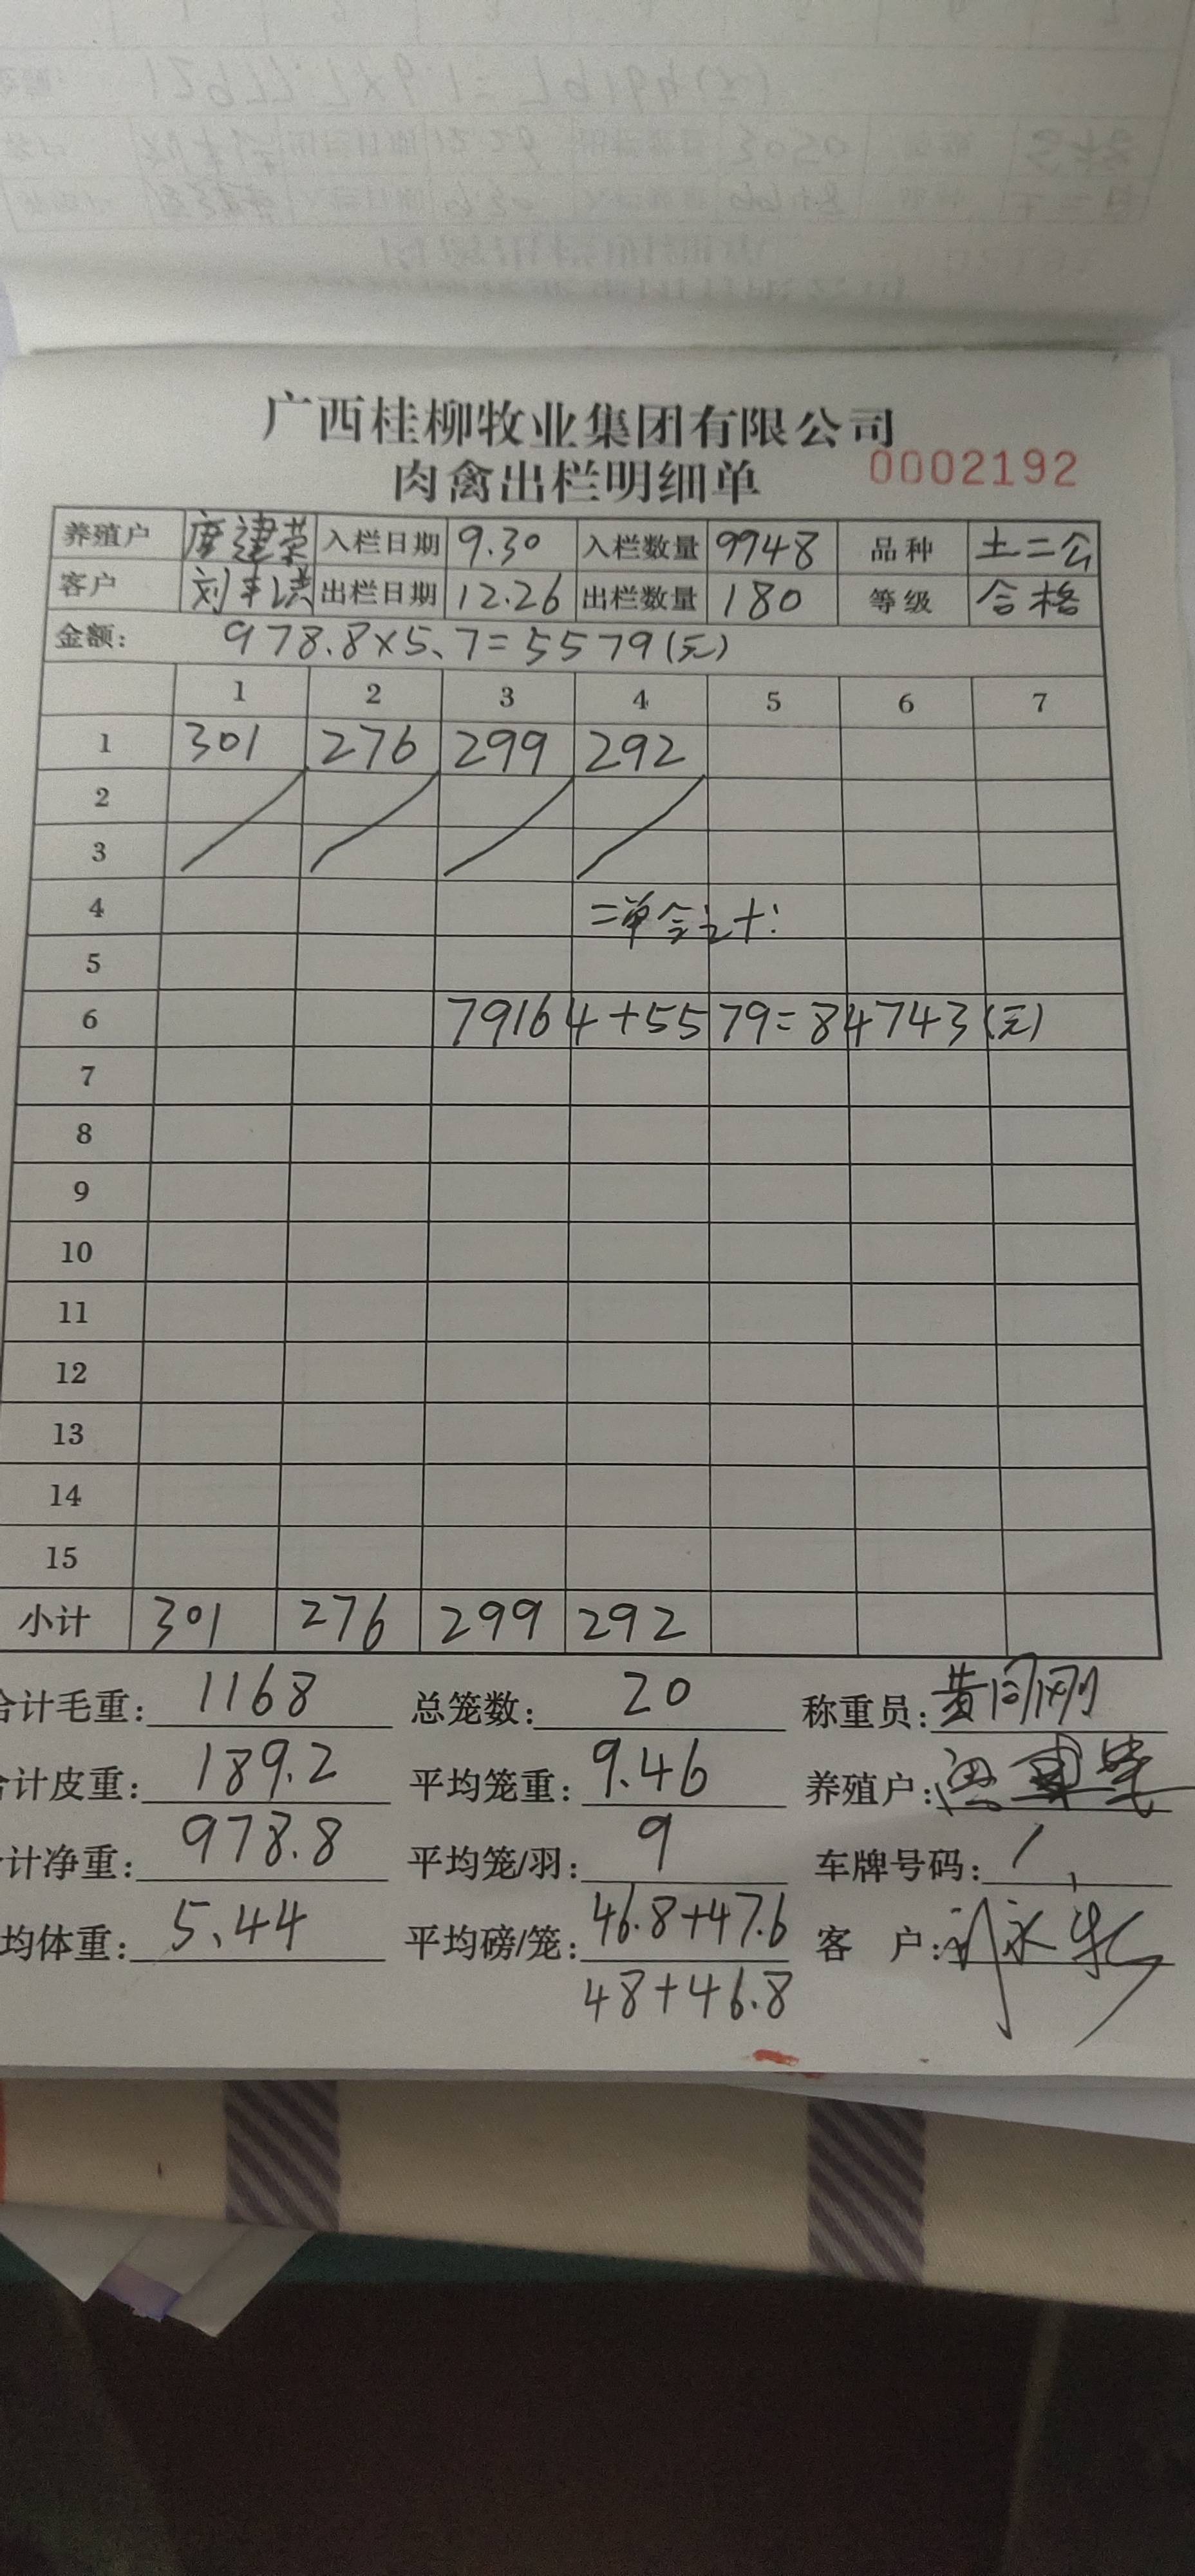 广西桂柳牧业集团有限公司
肉禽出栏明细单 0002192
养殖户 建荣 入栏日期 9.30 入栏数量 9948 品种 土二公
客户 刘 出栏日期 12.26 出栏数量 180 等级 合格
金额: 978.8×5.7=5579(元)
1 2 3 4 5 6 7
1 301 276 299 292
2
3
4 二单合计:
5
6 79164+5579=84743(元)
7
8
9
10
11
12
13
14
15
小计 301 276 299 292
合计毛重: 1168 总笼数: 20 称重员: 黄
计皮重: 189.2 平均笼重: 9.46 养殖户:
计净重: 978.8 平均笼/羽: 9 车牌号码: /
均体重: 5.44 平均磅/笼: 46.8+47.6 客 户:
48+46.8